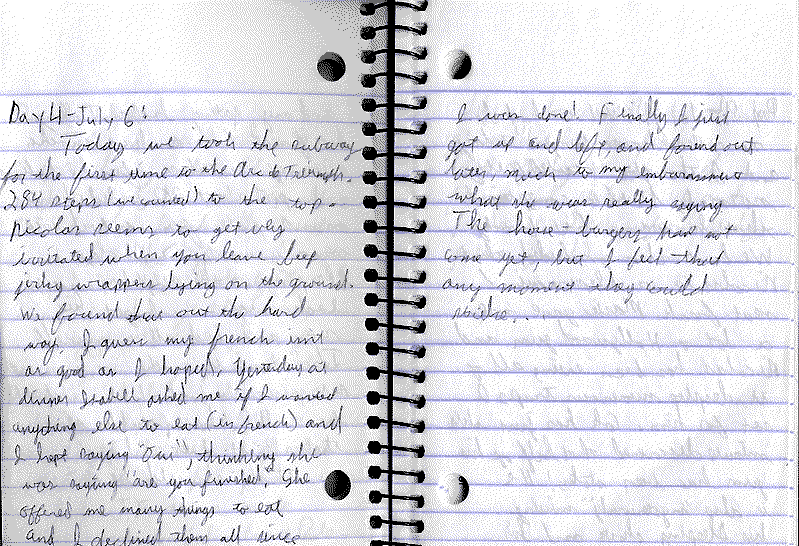 Day 4 - July 6:
Today we took the subway
for the first time to the Arc de Triumph.
284 steps (we counted) to the top.
Nicolas seems to get very
irritated when you leave beef
jerky wrappers lying on the ground.
We found that out the hard
way. I guess my french isnt
as good as I hoped. Yesterday at
dinner Isabell asked me if I wanted
anything else to eat (in french) and
I kept saying "Oui", thinking she
was saying "are you finished," She
offered me many things to eat
and I declined them all since
I was done! Finally I just
got up and left, and found out
later, much to my embarassment
what she was really saying
The horse-burgers have not
come yet, but I feel that
any moment they could
strike...